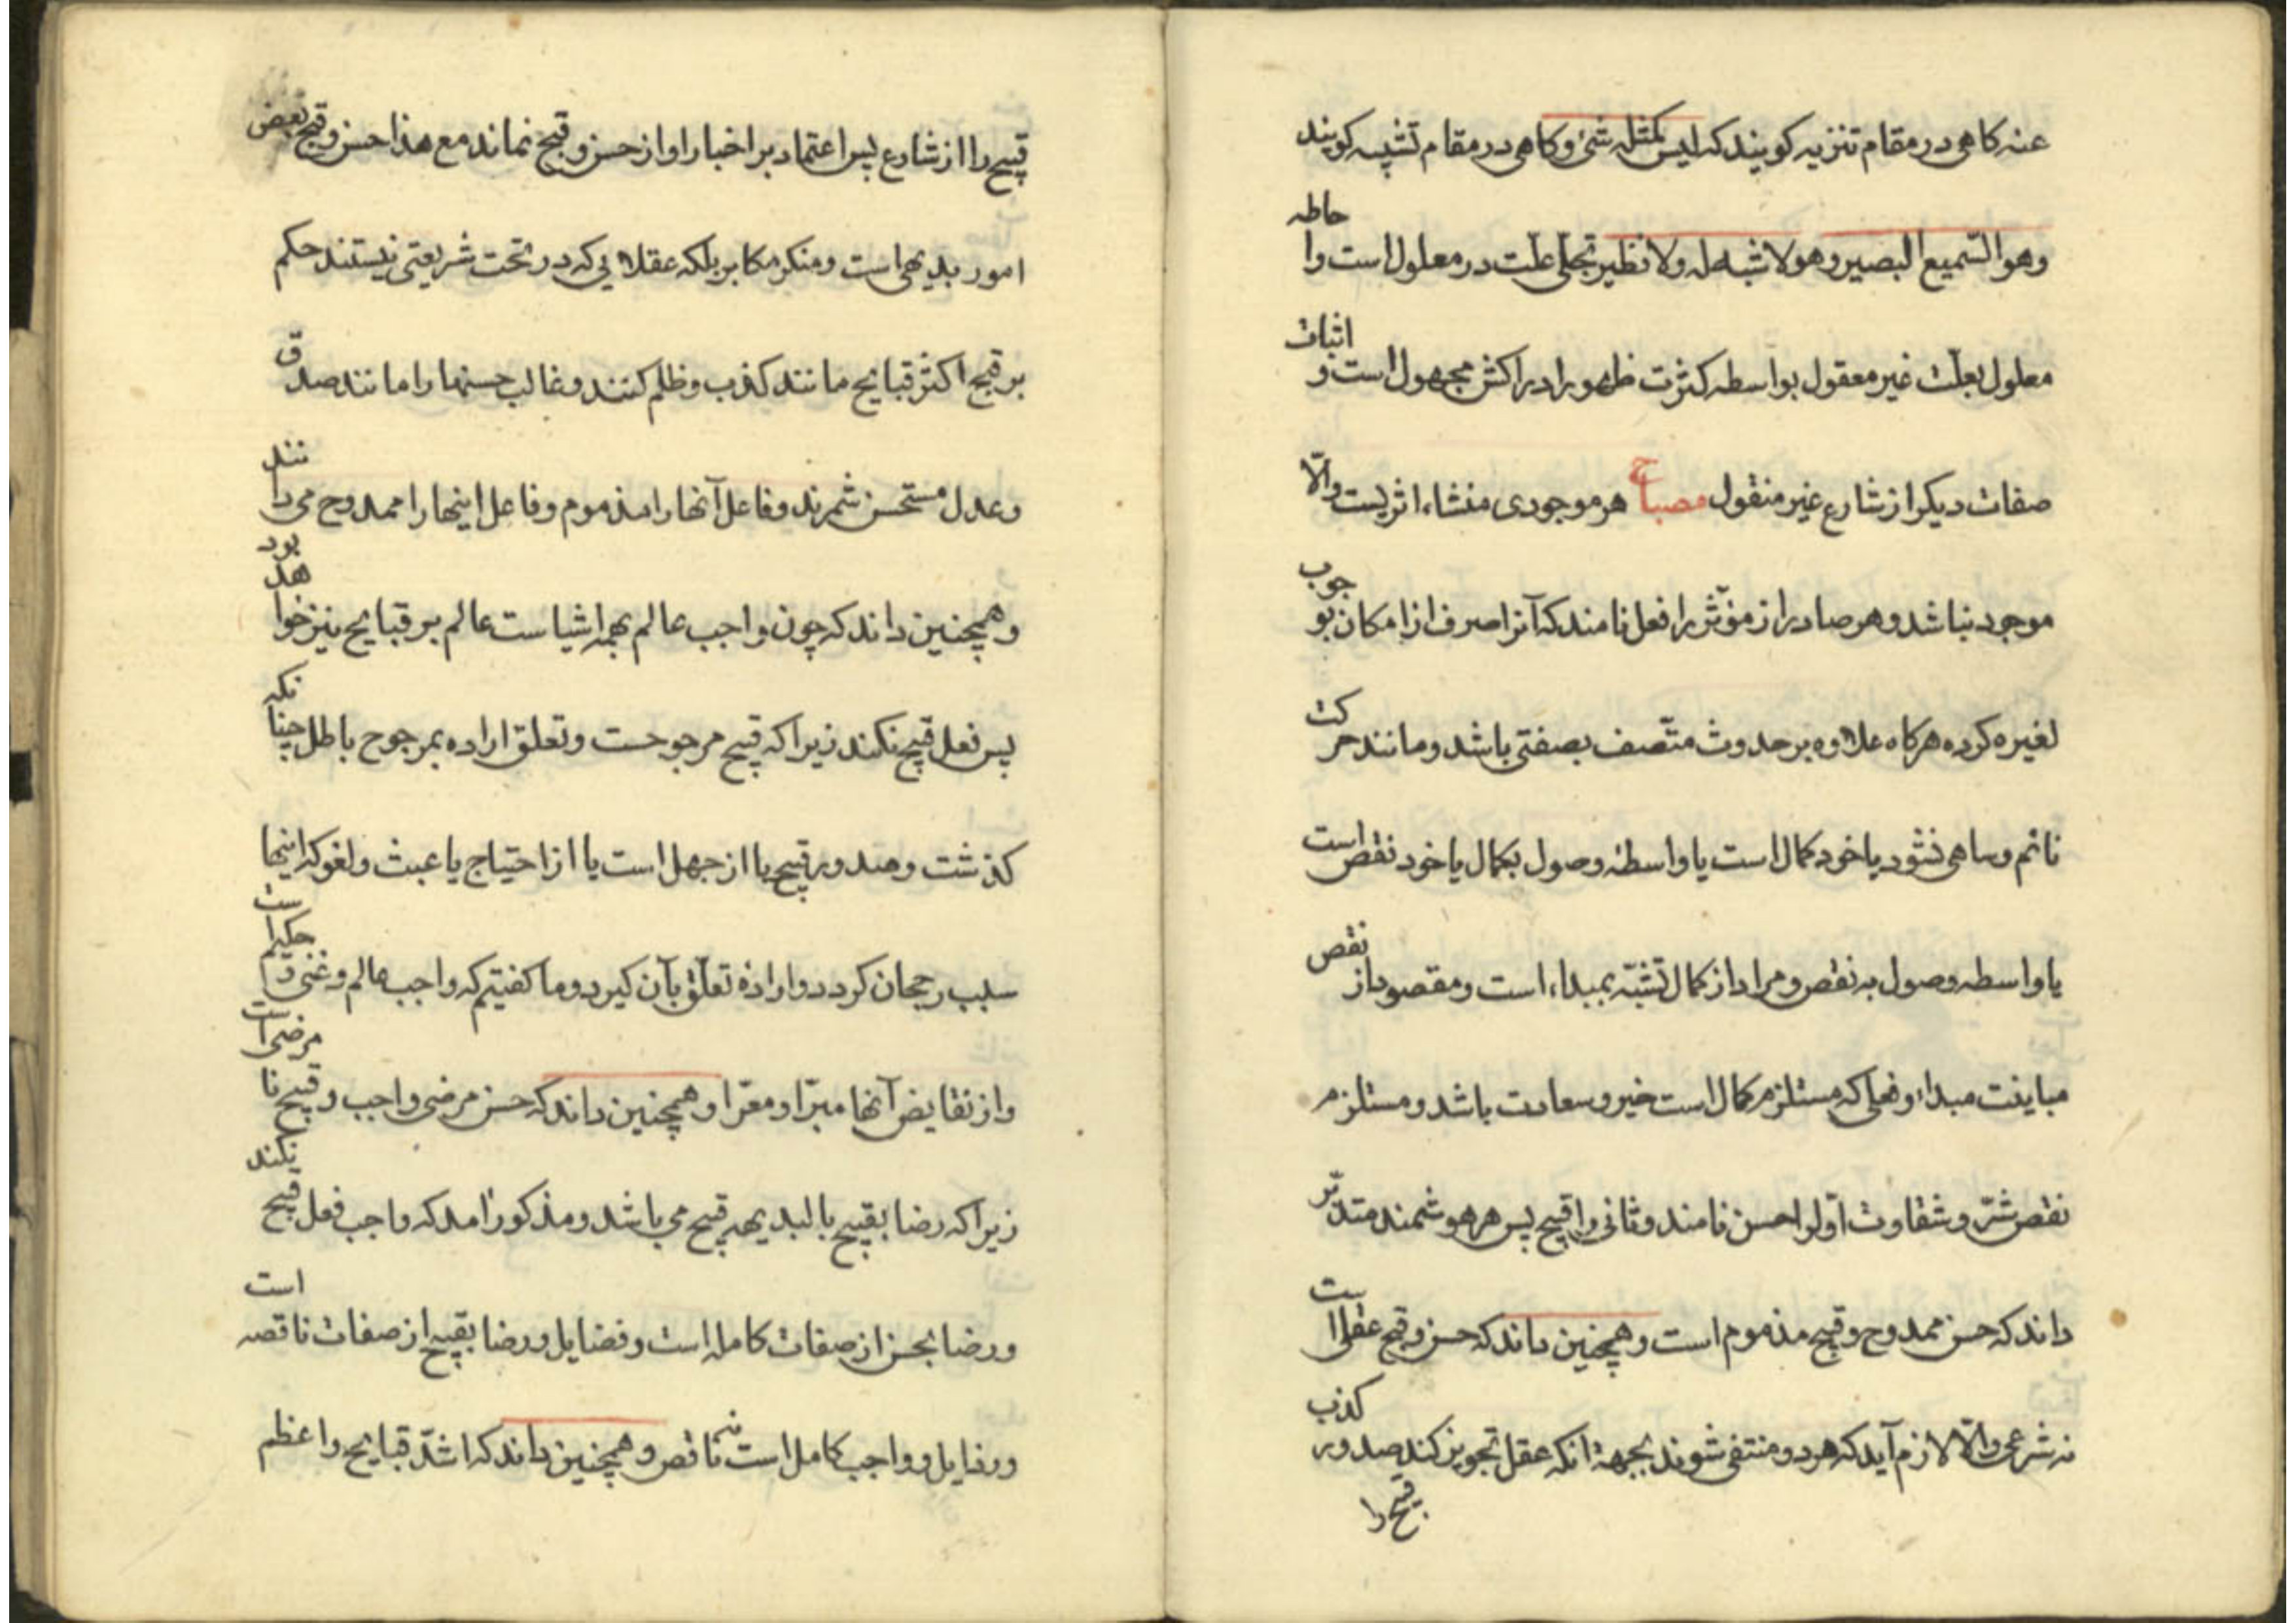 عنه کاهی در مقام تنزیه کویند که لیس کمثله شئ و کاهی در مقام تشبیه کویند
وهو السّمیع البصیر وهو لا شبه له ولا نظیر تجلّی علّت در معلول است واحاطه
معلول بعلّت غیر معقول بواسطه کثرت ظهور ادراکش مجهول است و اثبات
صفات دیکر از شارع غیر منقول مصباح هر موجودی منشاء اثریست والّا
موجود نباشد و هر صادر از مؤثّر را فعل نامند که آنرا صرف از امکان بوجوب
لغیره کرده هرکاه علاوه بر حدوث متّصف بصفتی باشد و مانند حرکت
نائم و ساهی نشود یا خود کمال است یا واسطهٔ وصول بکمال یا خود نقص است
یا واسطه وصول به نقص و مراد از کمال تشبّه بمبداء است و مقصود از نقص
مباینت مبداء و فعلی که مستلزم کمال است خیر و سعادت باشد و مستلزم
نقص شرّ و شقاوت اوّلرا حسن نامند و ثانی را قبیح پس هر هوشمند متدبّر
داند که حسن ممدوح و قبیح مذموم است و همچنین داند که حسن و قبح عقلی است
نه شرعی والّا لازم آید که هر دو منتفی شوند بجهة انکه عقل تجویز کند صدور کذب
قبیح را
قبیح را از شارع پس اعتماد بر اخبار او از حسن و قبح نماند مع هذا حسن و قبح بعض
امور بدیهی است و منکر مکابر بلکه عقلایی که در تحت شریعتی نیستند حکم
بر قبح اکثر قبایح مانند کذب و ظلم کنند و غالب حسنها را مانند صدق
و عدل مستحسن شمرند و فاعل آنها را مذموم و فاعل اینها را ممدوح می دانند
و همچنین داند که چون واجب عالم بهمه اشیاست عالم بر قبایح نیز خواهد بود
پس فعل قبیح نکند زیرا که قبیح مرجوحست و تعلق اراده بمرجوح باطل چنانکه
کذشت و صدور قبیح یا از جهل است یا از احتیاج یا عبث و لغو که اینها
سبب رجحان کردد و ارادهٔ تعلّق بآن کیرد و ما کفتیم که واجب عالم و غنی و حکیم است
و از نقایض آنها مبرّا و معرّا و همچنین داند که حسن مرضی واجب و قبیح نا مرضی است
زیرا که رضا بقبیح بالبدیهه قبیح می باشد و مذکور آمد که واجب فعل قبیح نکند
و رضا بحسن از صفات کامله است و فضایل و رضا بقبیح از صفات ناقصه است
و رذایل و واجب کامل است نه ناقص و همچنین داند که اشدّ قبایح و اعظم